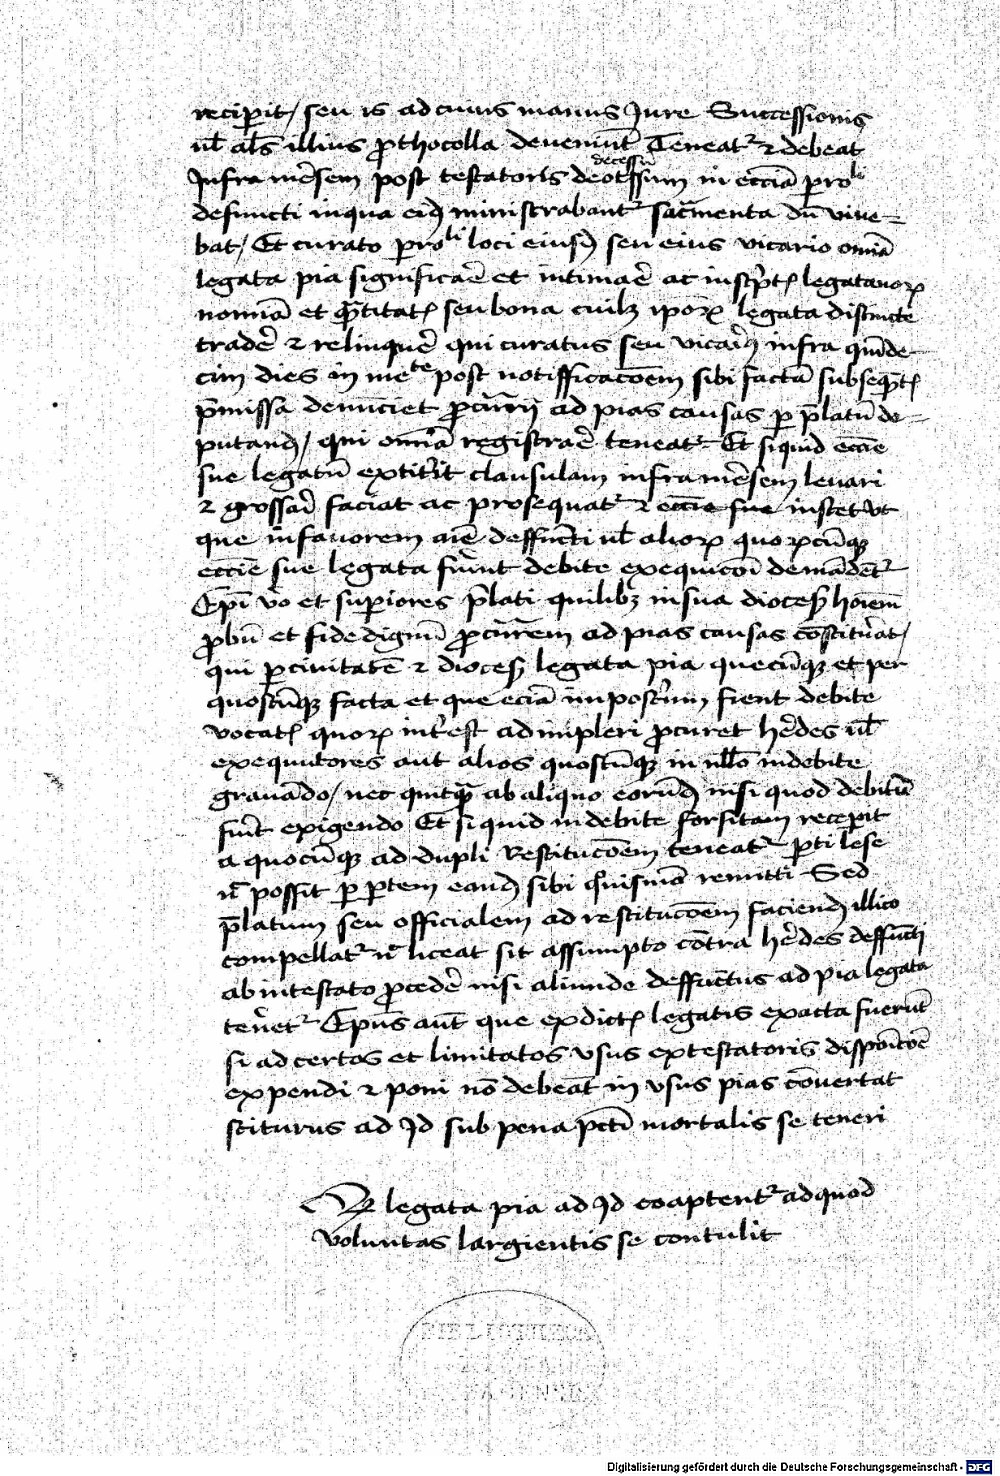 recipit / seu is ad cuius manus Jure Successionis
ul̄ als̄ illius ꝓthocolla deueniūt Teneatᷣ ⁊ debeat
Infra mēsem post testatoris decessū in eccīā ꝑroli
defuncti in qua eidē ministrabantᷣ sacr̄menta dū viue-
bat / Et curato ꝑroli loci eiusd̄ seu eius vicario omīa
legata pia significar̄e et intimar̄e ac in scp̄tꝭ legatarioꝝ
nomīa et qūtitatꝭ seu bona cuilꝫ ipoꝝ legata distincte
trader̄e ⁊ relinquer̄e qui curatus seu vicari9 infra quīde-
cim dies in mete post notifficacōem sibi factā subseqūtꝭ
p̄missa denūciet ꝓcur̄rij ad pias causas ꝑ p̄latū de-
putand̄ / qui omīa registrar̄e teneatᷣ Et siquid eccīe
sue legatū extitīt clausulam infra mēsem leuari
⁊ grossarī faciat ac prosequatᷣ ⁊ eccīe sue instet vt
que in fauorem aīe deffūcti ul̄ alioꝝ quoꝝcūqꝫ
eccīe sue legata fuīnt debite exequicōi demādētᷣ
Ep̄i vō et superiores p̄lati quilibꝫ in sua dioces̄ hōiem
ꝓbū et fide dignū ꝓcur̄rem ad pias causas cōstituāt /
qui ꝑ ciuitatē ⁊ dioces̄ legata pia quecūqꝫ et per
quoscūqꝫ facta et que eciā imposter̄um fient debite
vocatꝭ quoꝝ inter̄est adimpleri ꝓcuret her̄des ul̄
exequutores aut alios quoscūqꝫ in nl̄lo indebite
grauādo / nec quitqꝫ ab aliquo eorūd̄ nisi quod debitū
fuīt exigendo Et siquid indebite forsitam recepit
a quocūqꝫ ad dupli Restitucōem teneatᷣ ꝑti lese
nͨ possit ꝑ ꝑtem eand̄ sibi remitti Sed
p̄latum seu officialem ad restitucōem faciend̄ illico
compellatᷣ nͨ liceat sit assumpto cōtra her̄des deffūcti
ab intestato ꝓceder̄e nisi aliunde deffūctus ad pia legata
tenēetᷣ Ep̄us aūt que ex dictꝭ legatis exacta fuerūt
si ad certos et limitatos vsus ex testatoris disposicōe
expendi ⁊ poni nō debeāt in vsus pias cōuertat
sciturus ad Id sub pena pctī mortalis se teneri
Vt legata pia ad Id coaptentᷣ ad quod
voluntas largientis se contulit
Digitalisierung gefördert durch die Deutsche Forschungsgemeinschaft - DFG